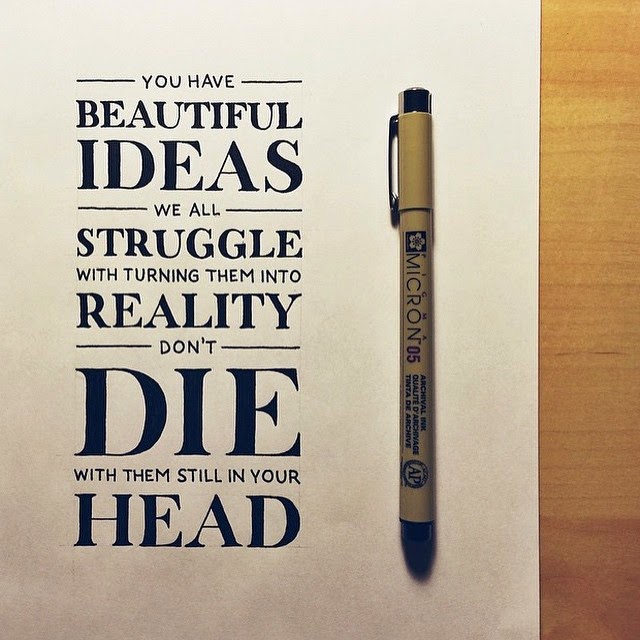 YOU HAVE
BEAUTIFUL
IDEAS
WE ALL
STRUGGLE
WITH TURNING THEM INTO
REALITY
DON'T
DIE
WITH THEM STILL IN YOUR
HEAD
SIGMA
MICRON 05
ARCHIVAL INK
QUALITÉ D'ARCHIVAGE
TINTA DE ARCHIVE
AP